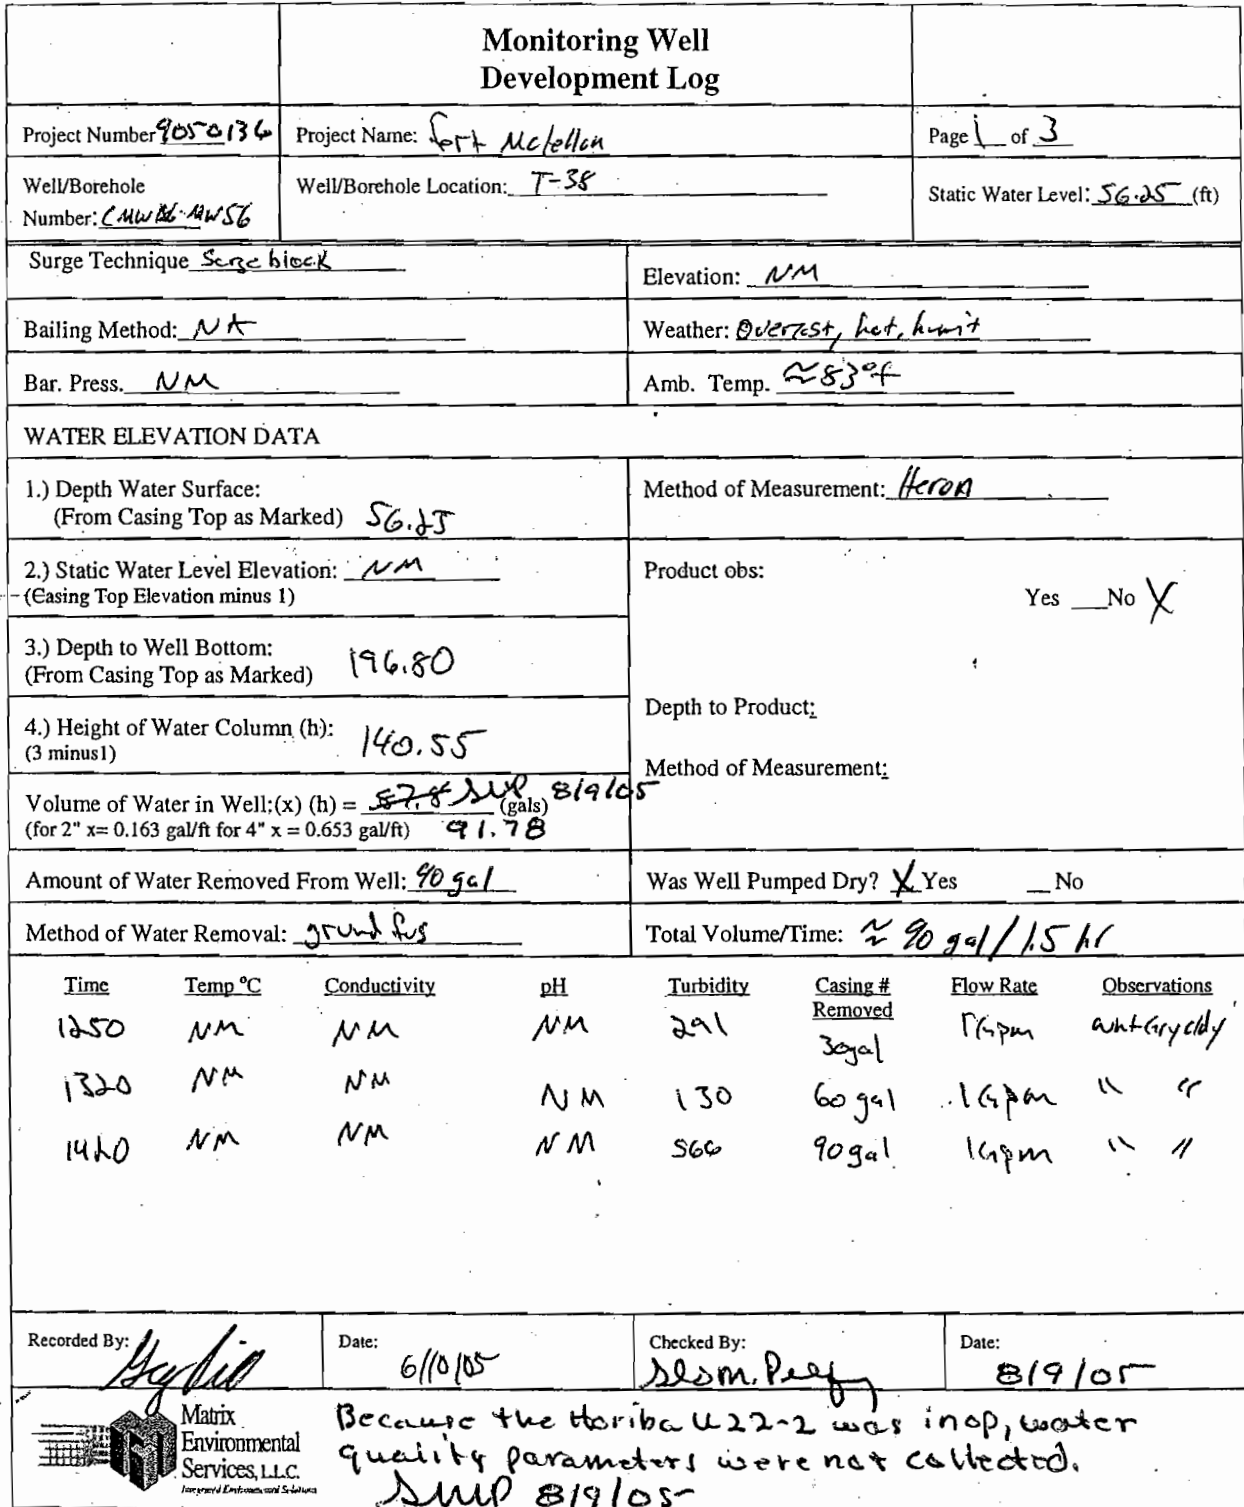 Monitoring Well
Development Log
Project Number 9050136
Project Name: Fort Mclellan
Page 1 of 3
Well/Borehole
Number:
Well/Borehole Location: T-38
Static Water Level: 56.25 (ft)
Surge Technique Surge block
Elevation: NM
Bailing Method: NA
Weather: Overcast, hot, humit
Bar. Press. NM
Amb. Temp. ≈83°f
WATER ELEVATION DATA
1.) Depth Water Surface:
(From Casing Top as Marked) 56.25
Method of Measurement: Heron
2.) Static Water Level Elevation: NM
(Casing Top Elevation minus 1)
Product obs:
Yes __No X
3.) Depth to Well Bottom:
(From Casing Top as Marked) 196.80
Depth to Product:
4.) Height of Water Column (h): 140.55
(3 minus1)
Method of Measurement:
Volume of Water in Well:(x) (h) = 87.8 SMP (gals) 8/9/05
(for 2" x= 0.163 gal/ft for 4" x = 0.653 gal/ft) 91.78
Amount of Water Removed From Well: 90 gal
Was Well Pumped Dry? X Yes __ No
Method of Water Removal: grund fus
Total Volume/Time: ≈ 90 gal/1.5 hr
Time Temp °C Conductivity pH Turbidity Casing # Removed Flow Rate Observations
1250 NM NM NM 291 30gal 1Gpm
1320 NM NM NM 130 60 gal 1Gpm " "
1420 NM NM NM 566 90gal 1Gpm " "
Recorded By:
Date: 6/10/05
Checked By:
Date: 8/9/05
Matrix
Environmental
Services, L.L.C.
Integrated Environmental Solutions
Because the Horiba U22-2 was inop, water
quality parameters were not collected.
SMP 8/9/05